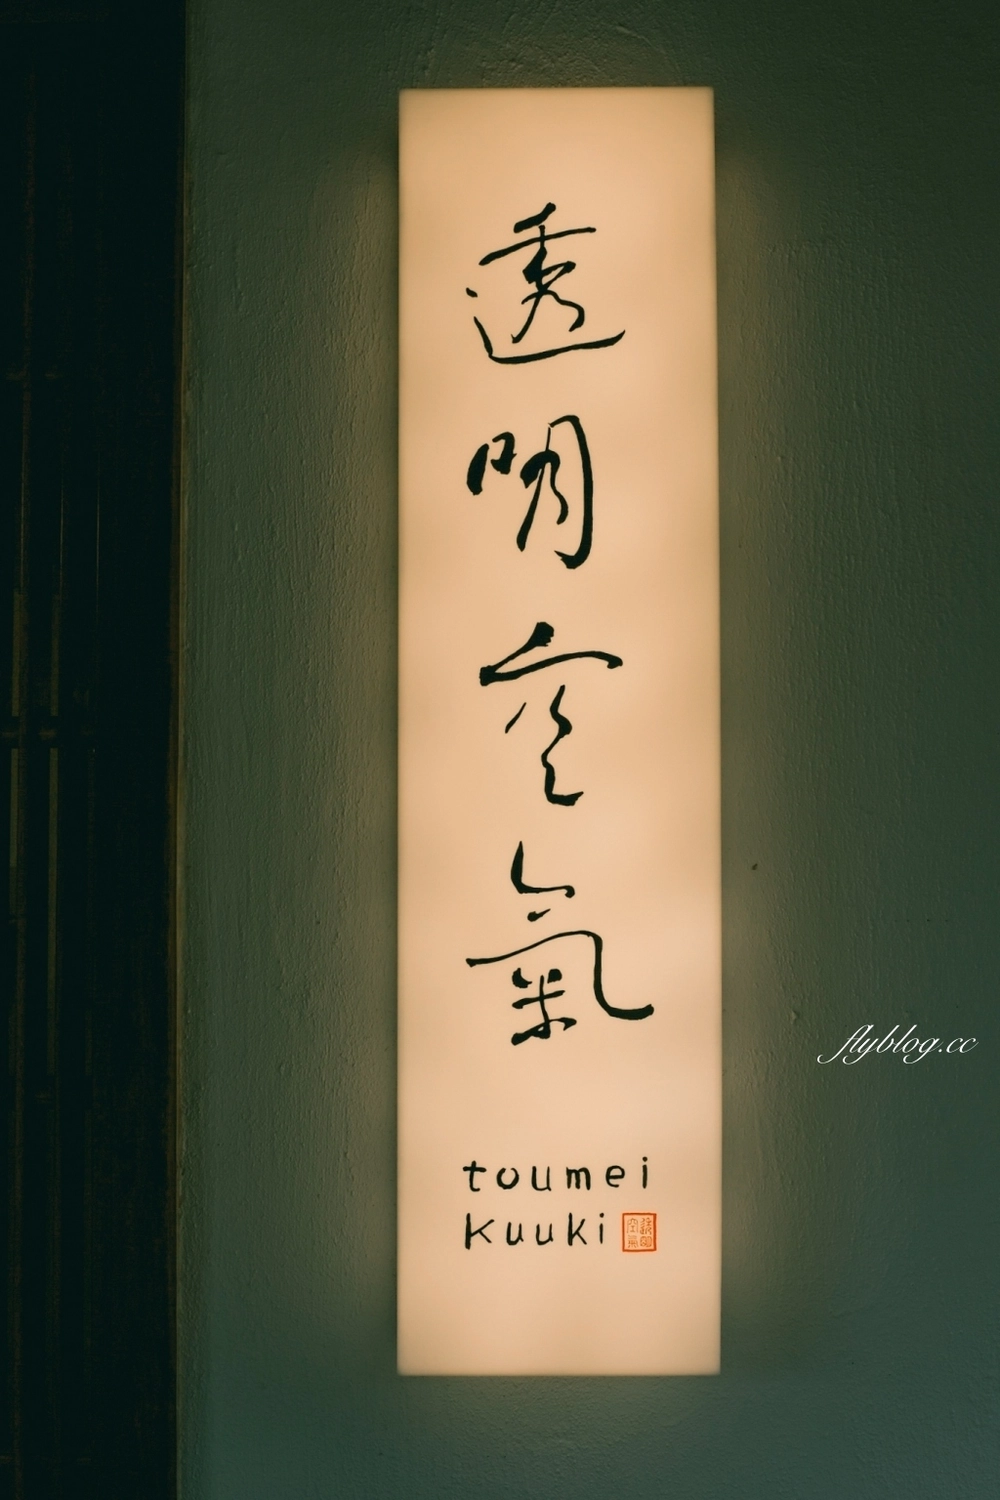 透明空氣
toumei
kuuki
透明
空氣
flyblog.cc